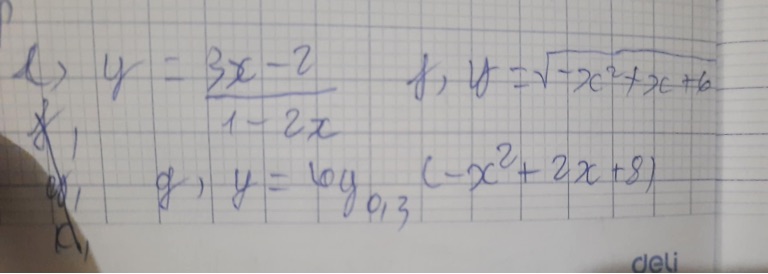 l, y = \frac{3x-2}{1-2x} f, y = \sqrt{-x^2+x+6}
g, y = log_{0,3} (-x^2+2x+8)
deli